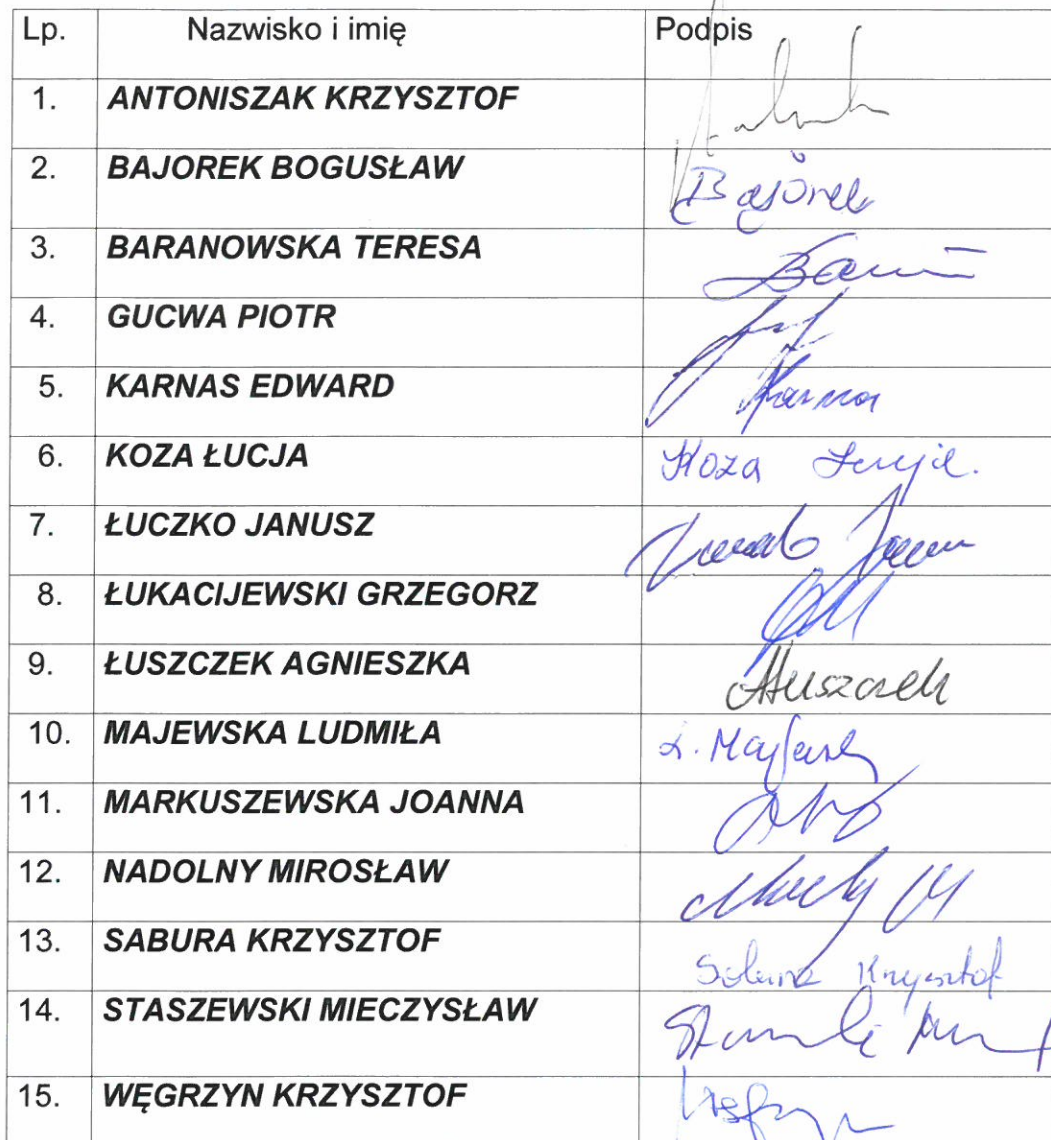 Lp. Nazwisko i imię Podpis
1. ANTONISZAK KRZYSZTOF
2. BAJOREK BOGUSŁAW Bajorek
3. BARANOWSKA TERESA
4. GUCWA PIOTR
5. KARNAS EDWARD
6. KOZA ŁUCJA Koza Łucja.
7. ŁUCZKO JANUSZ
8. ŁUKACIJEWSKI GRZEGORZ
9. ŁUSZCZEK AGNIESZKA
10. MAJEWSKA LUDMIŁA
11. MARKUSZEWSKA JOANNA
12. NADOLNY MIROSŁAW
13. SABURA KRZYSZTOF Krzysztof
14. STASZEWSKI MIECZYSŁAW
15. WĘGRZYN KRZYSZTOF